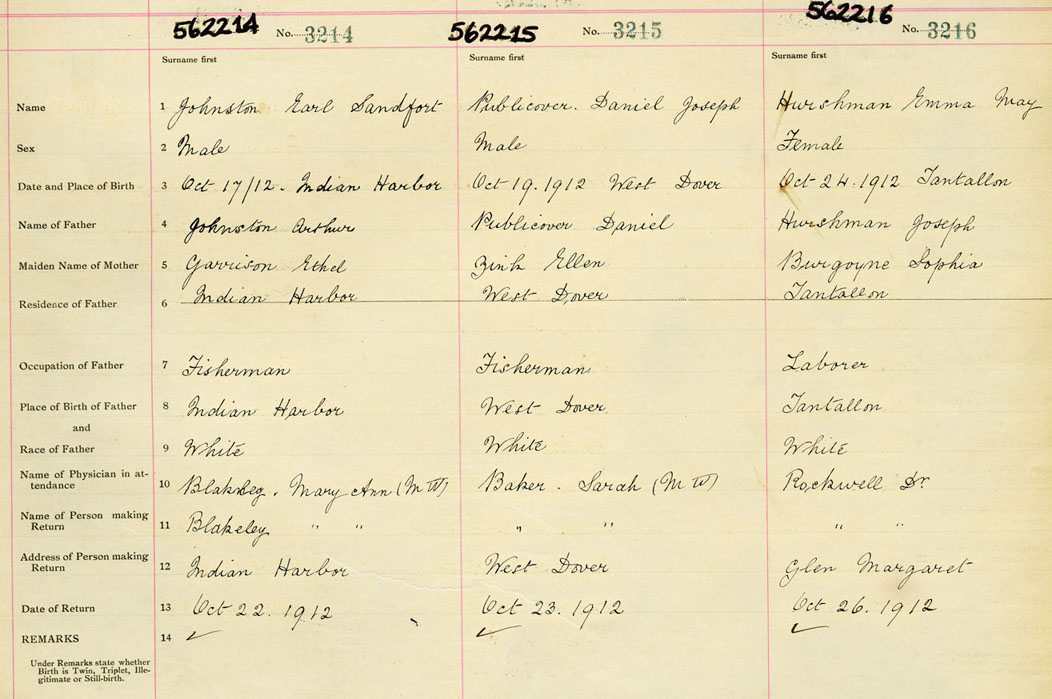 562214 No. 3214 562215 No. 3215 562216 No. 3216
Surname first Surname first Surname first
Name 1 Johnston Earl Sandfort Publicover. Daniel Joseph Hurshman Emma May
Sex 2 Male Male Female
Date and Place of Birth 3 Oct 17/12. Indian Harbor Oct 19. 1912 West Dover Oct 24. 1912 Tantallon
Name of Father 4 Johnston Arthur Publicover Daniel Hurshman Joseph
Maiden Name of Mother 5 Garrison Ethel Zink Ellen Burgoyne Sophia
Residence of Father 6 Indian Harbor West Dover Tantallon
Occupation of Father 7 Fisherman Fisherman Laborer
Place of Birth of Father 8 Indian Harbor West Dover Tantallon
and
Race of Father 9 White White White
Name of Physician in at-
tendance 10 Blakeley. Mary Ann (M W) Baker. Sarah (M W) Rockwell Dr.
Name of Person making
Return 11 Blakeley " " " " " "
Address of Person making
Return 12 Indian Harbor West Dover Glen Margaret
Date of Return 13 Oct 22. 1912 Oct 23. 1912 Oct 26. 1912
REMARKS 14 ✓ ✓ ✓
Under Remarks state whether
Birth is Twin, Triplet, Ille-
gitimate or Still-birth.